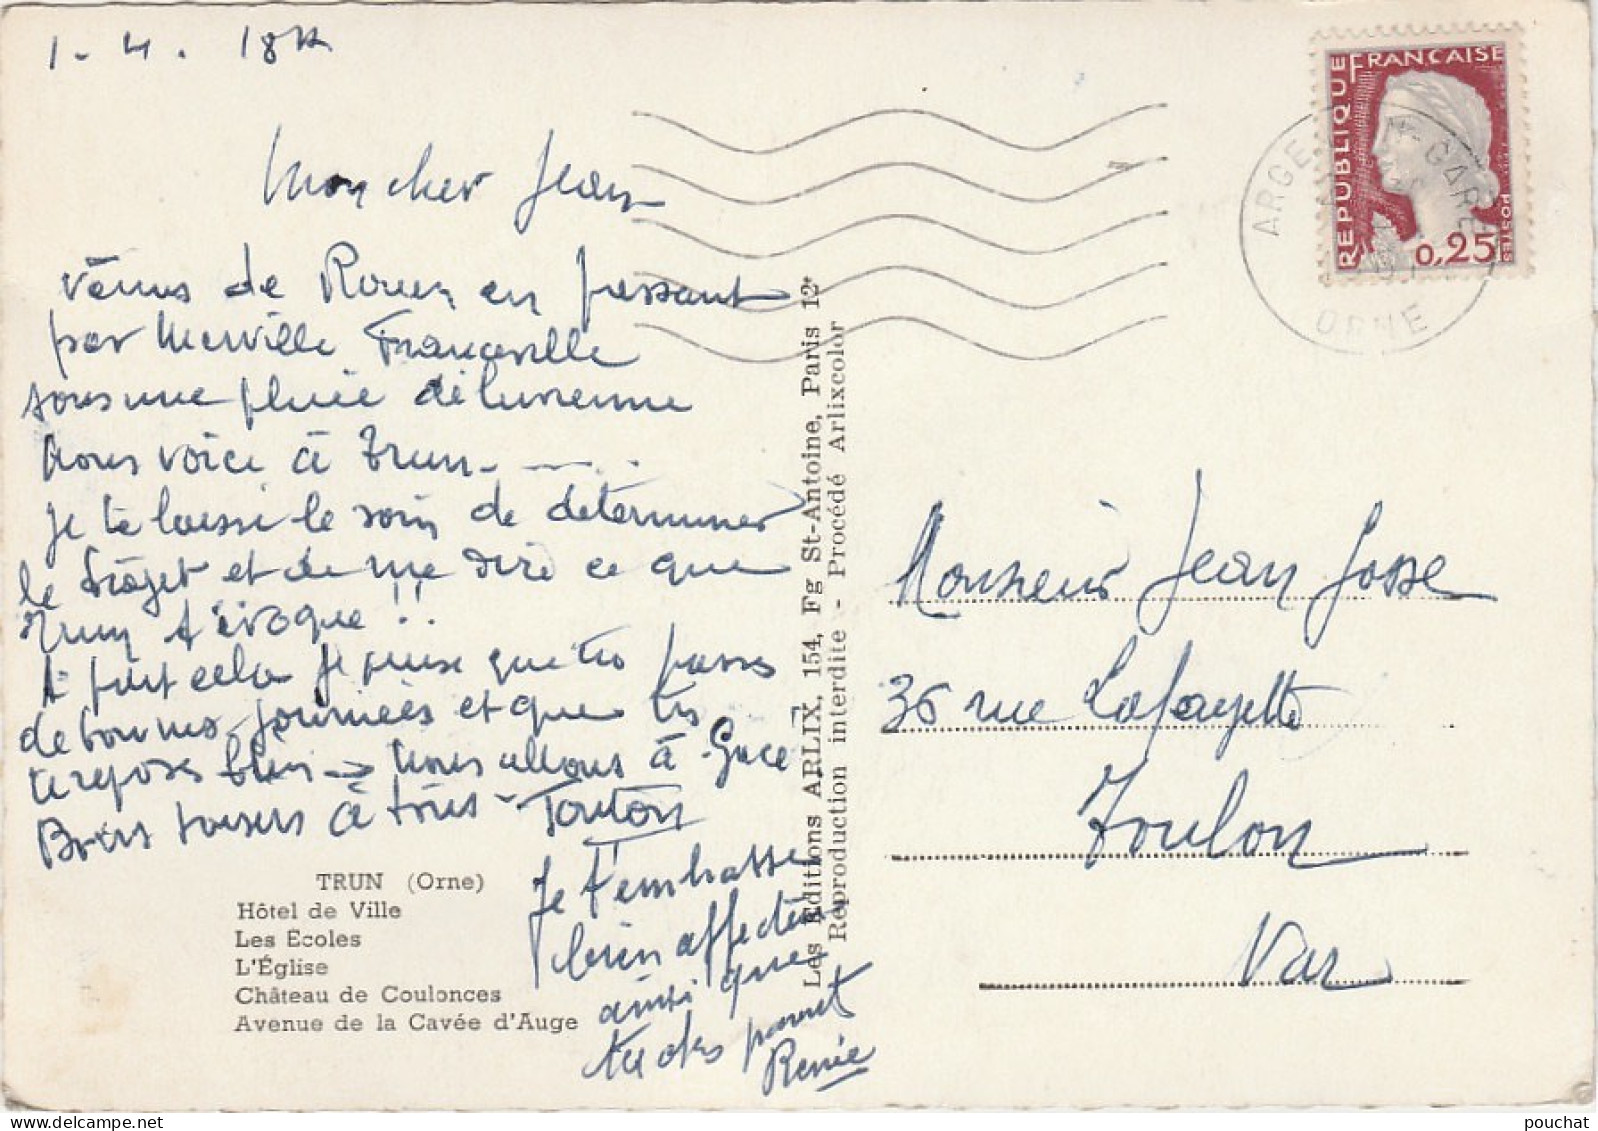 1-4. 18H
Mon cher Jean
Venus de Rouen en passant
par Merville Franceville
sous une pluie diluvienne
nous voici à Trun-
Je te laisse le soin de déterminer
le trajet et de me dire ce que
Trun t'évoque!!
A part cela je pense que tu passes
de bonnes journées et que tu
te reposes bien - Nous allons à Gacé
Bons baisers à tous - Tonton
Je t'embrasse
bien affect
ainsi que
tes
Renée
TRUN (Orne)
Hôtel de Ville
Les Ecoles
L'Église
Château de Coulonces
Avenue de la Cavée d'Auge
Les Editions ARLIX, 154, Fg St-Antoine, Paris 12e
Reproduction interdite - Procédé Arlixcolor
REPUBLIQUE FRANÇAISE
POSTES
0,25
ARGE N-GARE
ORNE
Monsieur Jean Josse
36 rue Lafayette
Toulon
Var
pouchat